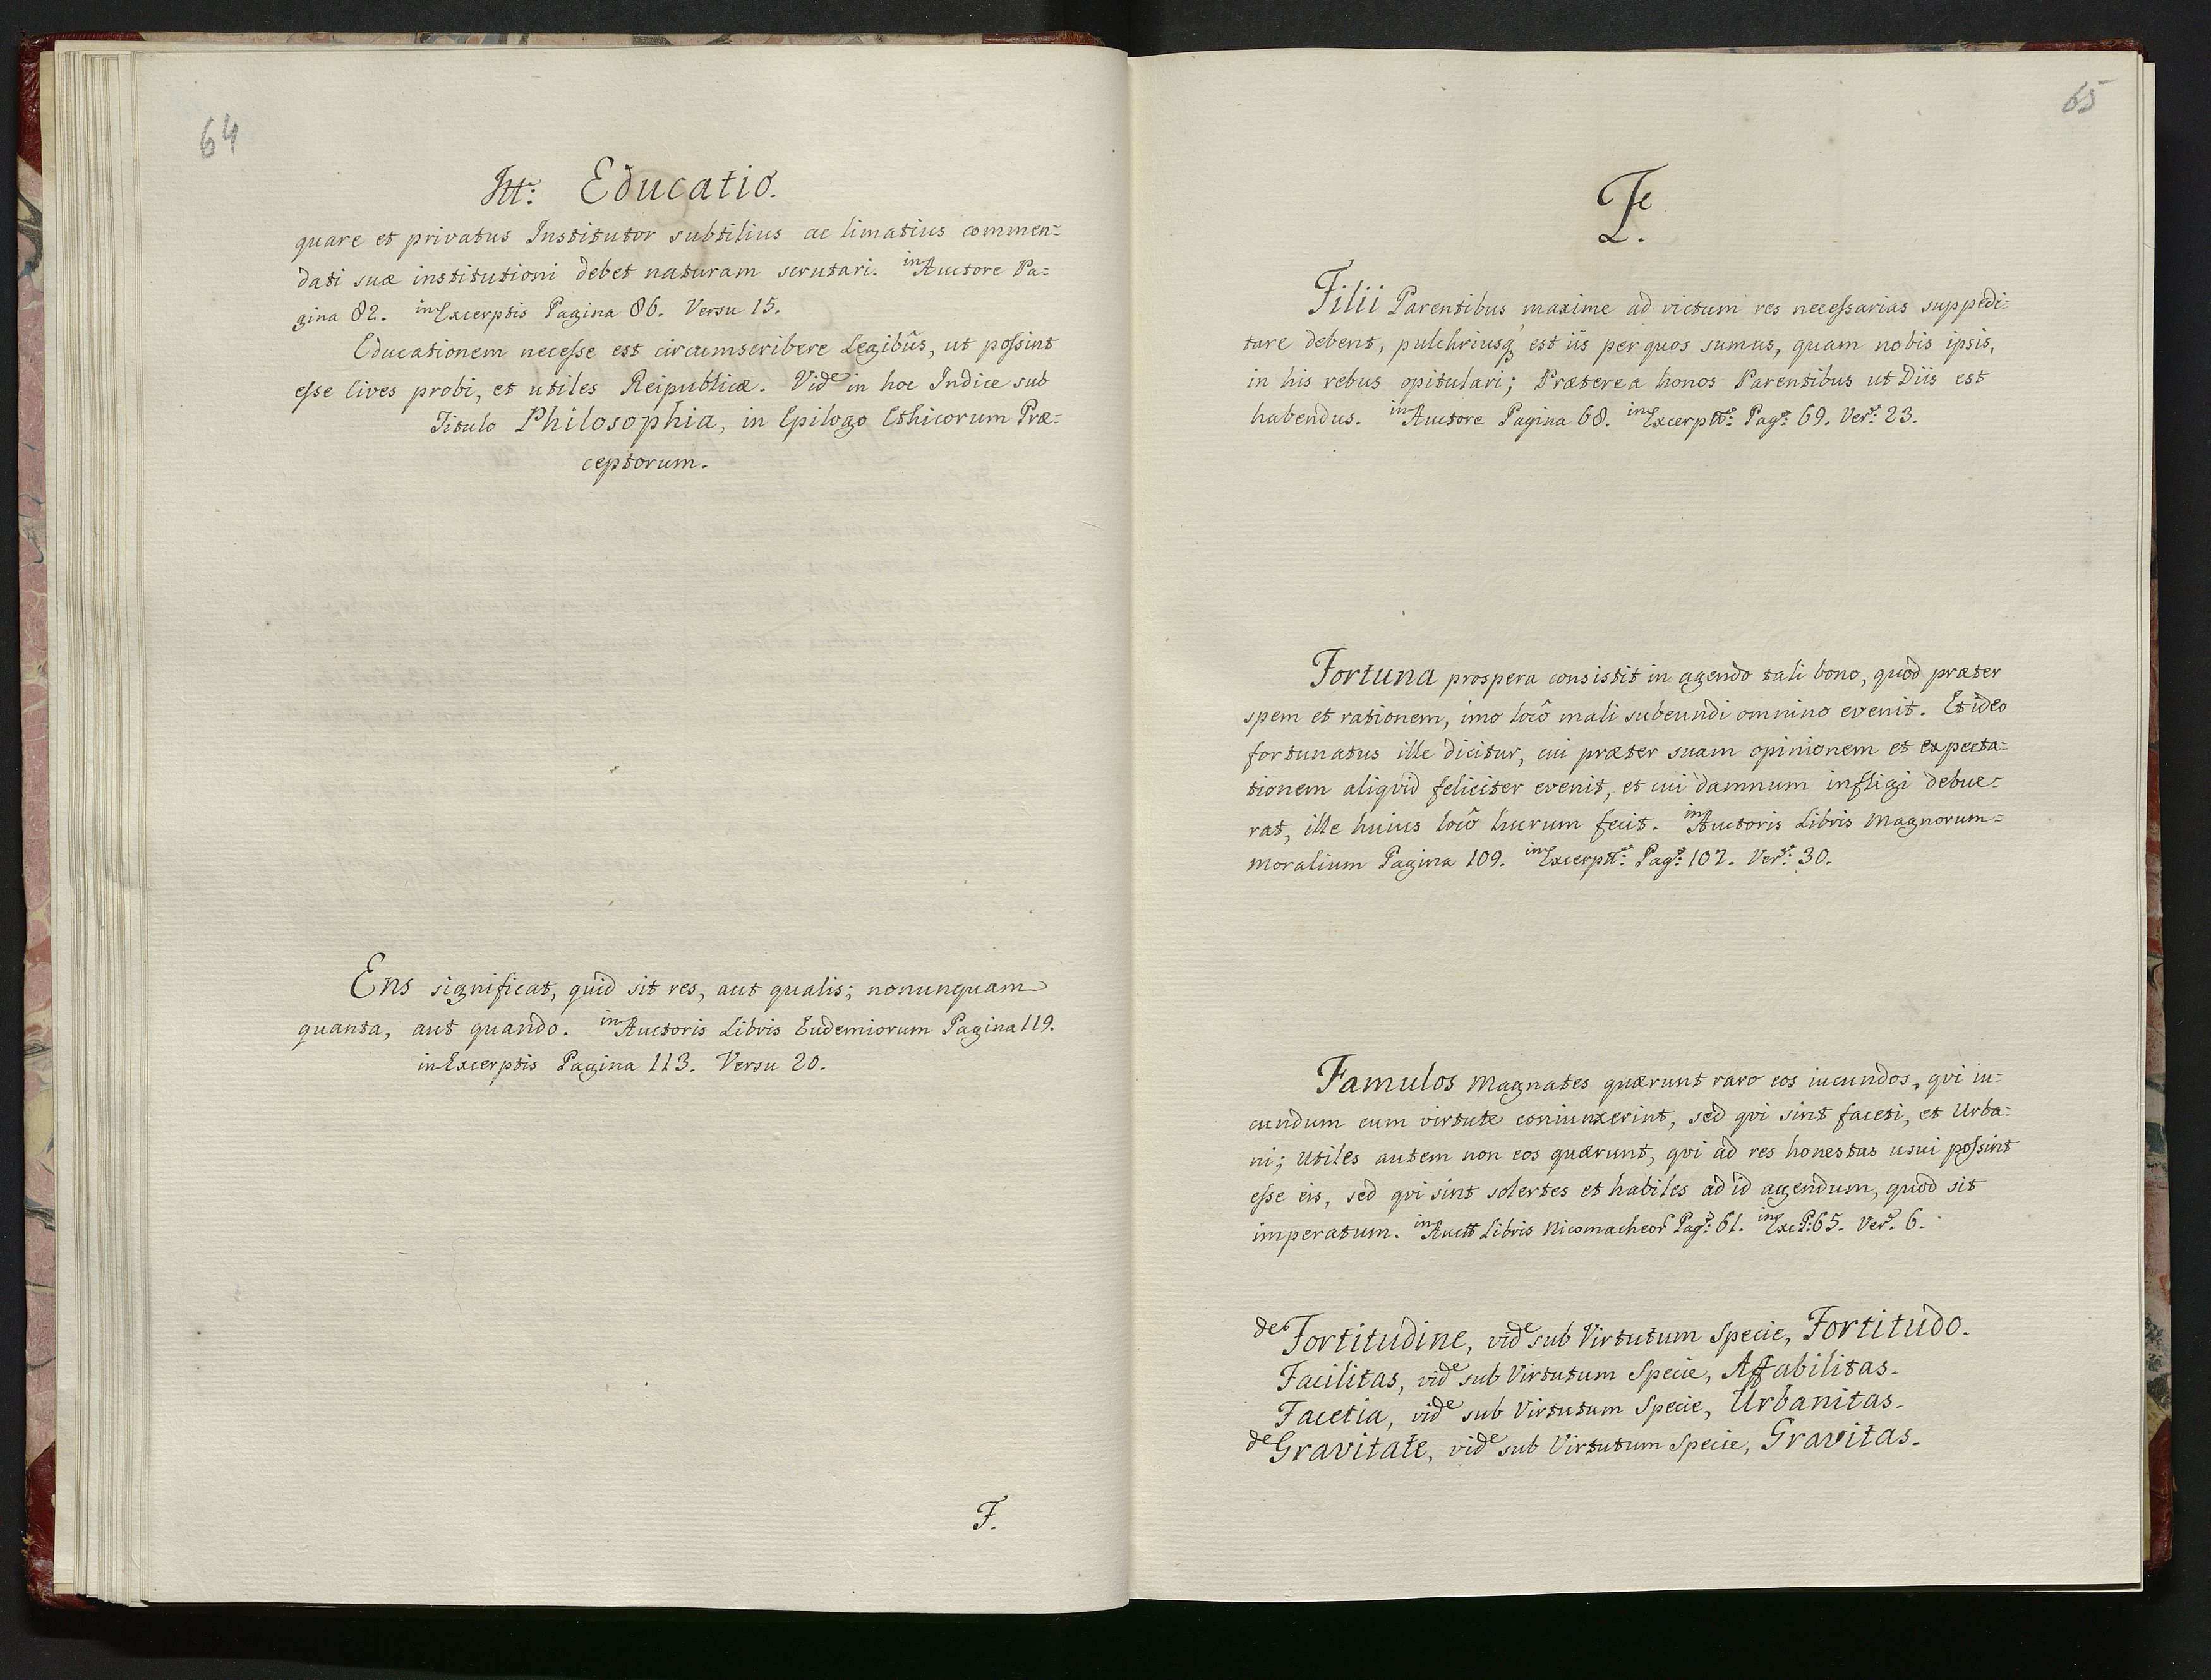 64
Itt: Educatio.
quare et privatus Institutor subtilius ac limatius commen=
dati suæ institutioni debet naturam scrutari. in Auctore Pa=
gina 82. in Excerptis Pagina 86. Versu 15.
Educationem necesse est circumscribere Legibûs, ut possint
esse Cives probi, et utiles Reipublicæ. Vide in hoc Indice sub
Titulo Philosophia, in Epilogo Ethicorum Præ=
ceptorum.
Ens significat, quid sit res, aut qualis; nonunquam
quanta, aut quando. in Auctoris Libris Eudemiorum Pagina 119.
in Excerptis Pagina 113. Versu 20.
F.
65
F.
Filii Parentibus maxime ad victum res necessarias suppedi=
tare debent, pulchriusq est iis per quos sumus, quam nobis ipsis,
in his rebus opitulari; Præterea honos Parentibus ut Diis est
habendus. in Auctore Pagina 68. in Excerptis: Pag: 69. Ver: 23.
Fortuna prospera consistit in agendo tali bono, quod præter
spem et rationem, imo locô mali subeundi omnino evenit. Et ideo
fortunatus ille dicitur, cui præter suam opinionem et expecta=
tionem aliqvid feliciter evenit, et cui damnum infligi debue=
rat, ille huius locô lucrum fecit. in Auctoris Libris Magnorum=
Moralium Pagina 109. in Excerptis: Pag: 107. Ver: 30.
Famulos Magnates quærunt raro eos iucundos, qvi iu=
cundum cum virtute coniunxerint, sed qvi sint faceti, et Urba=
ni; Utiles autem non eos quærunt, qvi ad res honestas usui possint
esse eis, sed qvi sint solertes et habiles ad id agendum, quod sit
imperatum. in Auctt Libris Nicomacheor Pag: 61. in Exc P: 65. Ver. 6.
de Fortitudine, vide sub Virtutum Specie, Fortitudo.
Facilitas, vide sub Virtutum Specie, Affabilitas.
Facetia, vide sub Virtutum Specie, Urbanitas.
de Gravitate, vide sub Virtutum Specie, Gravitas.